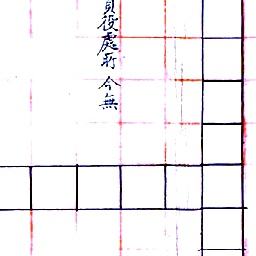 役處所今無